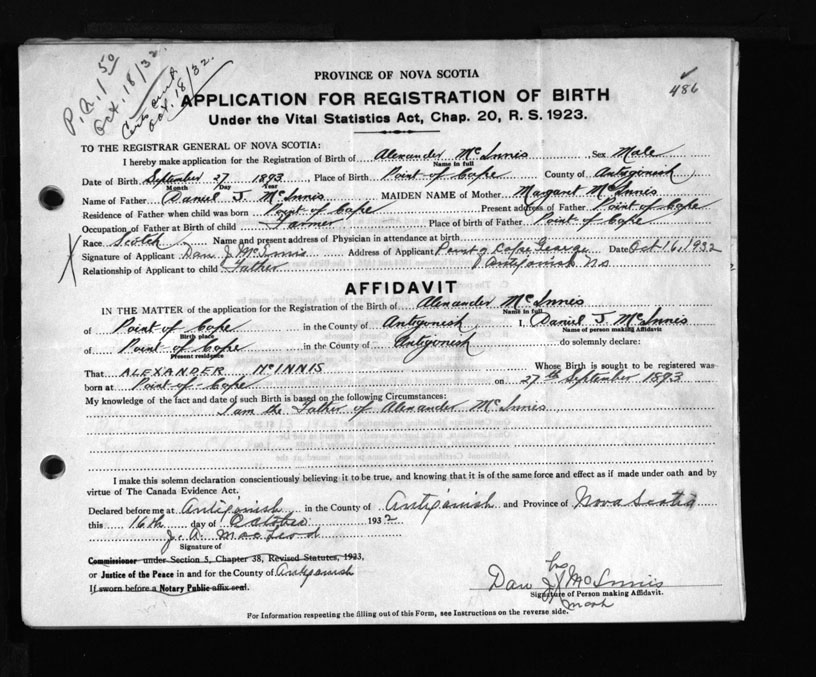 P.A. 1 50
Oct. 18/32.
Cert. sent
Oct. 18/32.
486
PROVINCE OF NOVA SCOTIA
APPLICATION FOR REGISTRATION OF BIRTH
Under the Vital Statistics Act, Chap. 20, R. S. 1923.
TO THE REGISTRAR GENERAL OF NOVA SCOTIA:
I hereby make application for the Registration of Birth of Alexander McInnis Sex Male
Name in full
Date of Birth September 27 1893 Place of Birth Point-of Cape County of Antigonish
Month Day Year
Name of Father Daniel J. McInnis MAIDEN NAME of Mother Margaret McInnis
Residence of Father when child was born Point-of Cape Present address of Father Point-of Cape
Occupation of Father at Birth of child Farmer Place of birth of Father Point-of Cape
Race Scotch Name and present address of Physician in attendance at birth
X Signature of Applicant Dan J McInnis Address of Applicant Point of Cape George Date Oct 16, 1932
Relationship of Applicant to child Father Antigonish NS
AFFIDAVIT
IN THE MATTER of the application for the Registration of the Birth of Alexander McInnis
Name in full
of Point-of Cape in the County of Antigonish I, Daniel J. McInnis
Birth place Name of person making Affidavit
of Point of Cape in the County of Antigonish do solemnly declare:
Present residence
That ALEXANDER McINNIS Whose Birth is sought to be registered was
born at Point-of-Cape on 27th September 1893
My knowledge of the fact and date of such Birth is based on the following Circumstances:
I am the Father of Alexander McInnis
I make this solemn declaration conscientiously believing it to be true, and knowing that it is of the same force and effect as if made under oath and by
virtue of The Canada Evidence Act.
Declared before me at Antigonish in the County of Antigonish and Province of Nova Scotia
this 16th day of October 1932
J. A. MacLeod
Signature of
Commissioner under Section 5, Chapter 38, Revised Statutes, 1923.
or Justice of the Peace in and for the County of Antigonish
If sworn before a Notary Public affix seal.
his
Dan J X McInnis
Signature of Person making Affidavit.
mark
For Information respecting the filling out of this Form, see Instructions on the reverse side.